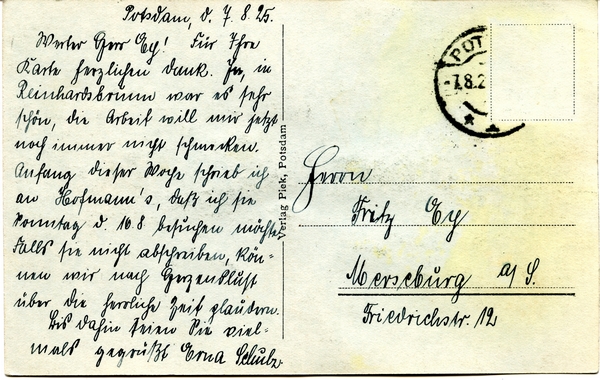 Potsdam, d. 7.8.25.
Werter Herr Ey! Für Ihre
Karte herzlichen Dank. Ja, in
Reinhardsbrunn war es sehr
schön, die Arbeit will mir jetzt
noch immer nicht schmecken.
Anfang dieser Woche schrieb ich
an Hofmann's, daß ich sie
Sonntag d. 16.8 besuchen möchte.
Falls sie nicht abschreiben, kön-
nen wir nach Herzenslust
über die herrliche Zeit plaudern.
Bis dahin seien Sie viel-
mals gegrüßt Erna Schulz.
Verlag Piek, Potsdam
POT
-7.8.2
Herrn
Fritz Ey
Merseburg a/S.
Friedrichstr. 12